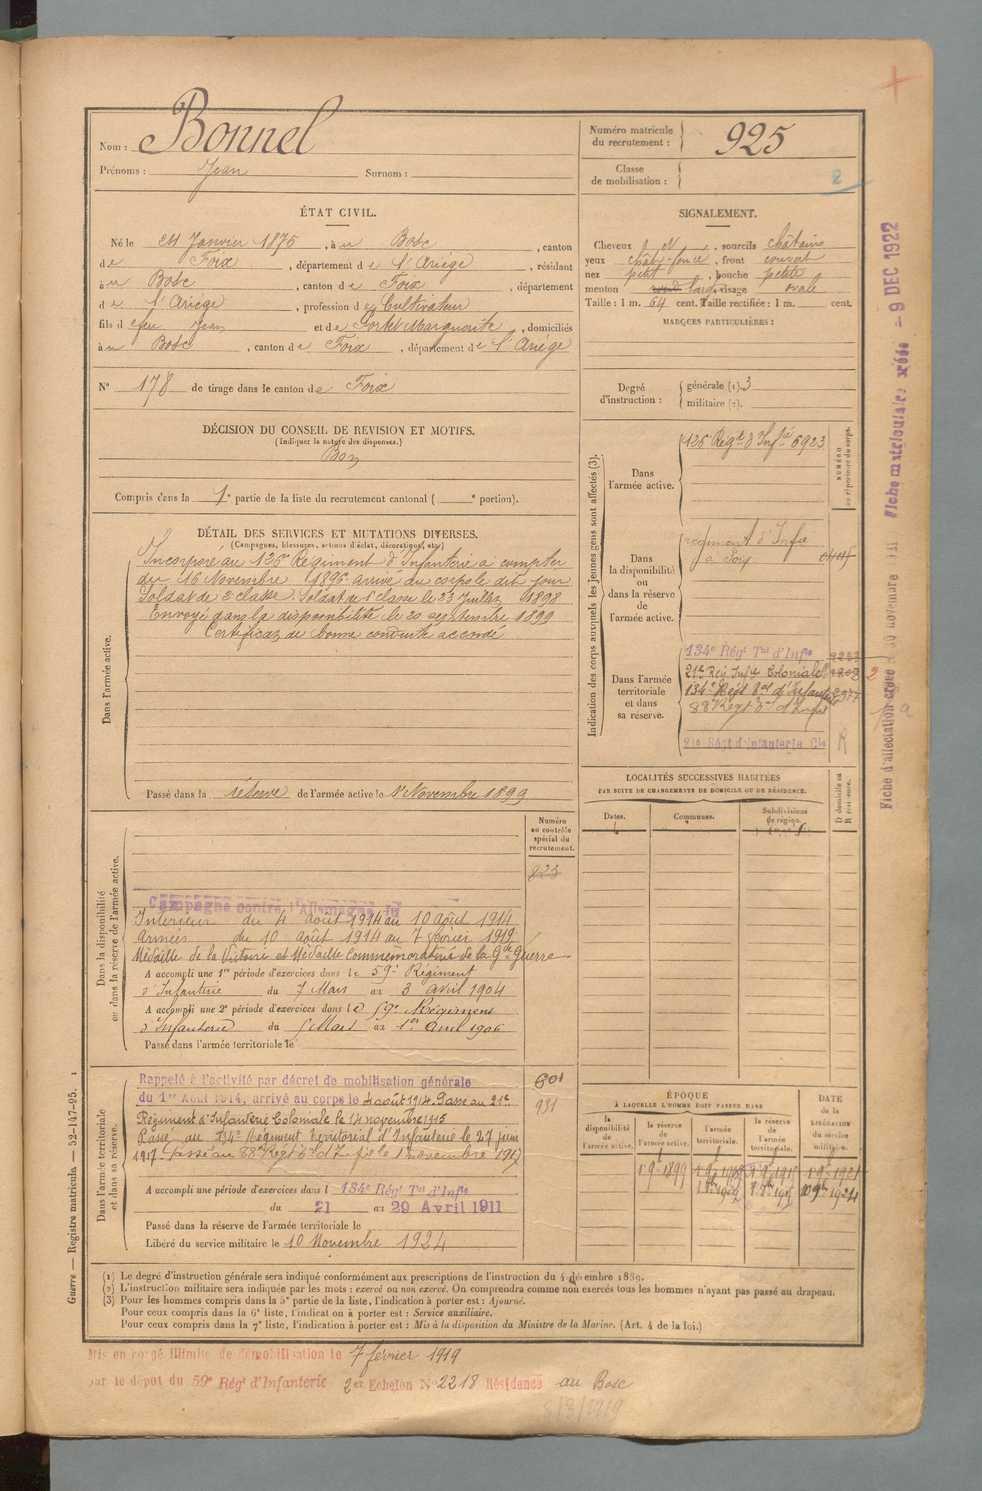 Nom : Bonnel
Prénoms : Jean Surnom :
Numéro matricule du recrutement : 925
Classe de mobilisation :
2
ÉTAT CIVIL.
Né le 24 Janvier 1875, à u Bosc, canton
de Foix, département de l'Ariége, résidant
à u Bosc, canton de Foix, département
de l'Ariége, profession de Cultivateur
fils de feu Jean et de Marguerite, domiciliés
à u Bosc, canton de Foix, département de l'Ariége
N° 178 de tirage dans le canton de Foix
DÉCISION DU CONSEIL DE REVISION ET MOTIFS.
(Indiquer la nature des dispenses.)
Bon
Compris dans la 1e partie de la liste du recrutement cantonal ( e portion).
DÉTAIL DES SERVICES ET MUTATIONS DIVERSES.
(Campagnes, blessures, actions d'éclat, décorations, etc.)
Dans l'armée active.
Incorporé au 126e Régiment d'Infanterie à compter
du 16 Novembre 1896 arrivé au corps le dit jour
Soldat de 2e classe. Soldat de 1e classe le 23 Juillet 1898
Envoyé dans la disponibilité le 20 septembre 1899
Certificat de bonne conduite accordé
Passé dans la réserve de l'armée active le 1er Novembre 1899
Dans la disponibilité ou dans la réserve de l'armée active.
Numéro au contrôle spécial du recrutement.
823
Campagne contre l'Allemagne du
Intérieur du 4 août 1914 au 10 août 1914
Armées du 10 août 1914 au 7 février 1919
Médaille de la Victoire et Médaille Commémorative de la Gde Guerre
A accompli une 1re période d'exercices dans le 59e Régiment
d'Infanterie du 7 Mars au 3 avril 1904
A accompli une 2e période d'exercices dans le 59e Régiment
d'Infanterie du 5 Mars au 1er avril 1906
Passé dans l'armée territoriale le
Dans l'armée territoriale et dans sa réserve.
601
931
Rappelé à l'activité par décret de mobilisation générale
du 1er Août 1914, arrivé au corps le 4 août 1914. Passé au 21e
Régiment d'Infanterie Coloniale le 14 novembre 1915
Passé au 134e Régiment Territorial d'Infanterie le 27 juin
1917. Passé au 88e Régt d'Infie le 1 novembre 1917
A accompli une période d'exercices dans l 134e Régt Tal d'Infie
du 21 au 29 Avril 1911
Passé dans la réserve de l'armée territoriale le
Libéré du service militaire le 10 Novembre 1924
SIGNALEMENT.
Cheveux, sourcils châtains
yeux chât-foncé, front couvert
nez petit, bouche petite
menton large, visage ovale
Taille : 1 m. 64 cent. Taille rectifiée : 1 m. cent.
MARQUES PARTICULIÈRES :
Degré d'instruction : générale (1). 3
militaire (2).
Indication des corps auxquels les jeunes gens sont affectés (3).
NUMÉRO au répertoire du corps.
Dans l'armée active.
126e Régt d'Infie 6923
Dans la disponibilité ou dans la réserve de l'armée active.
régiment d'Infie
à Foix
Dans l'armée territoriale et dans sa réserve.
134e Régt Tal d'Infie
21e Rég. Infie Coloniale
134e Régt d'Infanterie
88e Régt d'Infie
21e Régt d'Infanterie Cle
R
LOCALITÉS SUCCESSIVES HABITÉES
PAR SUITE DE CHANGEMENTS DE DOMICILE OU DE RÉSIDENCE.
Dates. Communes. Subdivisions de région. D domicile ou R résidence.
ÉPOQUE
À LAQUELLE L'HOMME DOIT PASSER DANS
DATE de la LIBÉRATION du service militaire.
la disponibilité de l'armée active. la réserve de l'armée active. l'armée territoriale. la réserve de l'armée territoriale.
(1) Le degré d'instruction générale sera indiqué conformément aux prescriptions de l'instruction du 4 décembre 1889.
(2) L'instruction militaire sera indiquée par les mots : exercé ou non exercé. On comprendra comme non exercés tous les hommes n'ayant pas passé au drapeau.
(3) Pour les hommes compris dans la 5e partie de la liste, l'indication à porter est : Ajourné.
Pour ceux compris dans la 6e liste, l'indication à porter est : Service auxiliaire.
Pour ceux compris dans la 7e liste, l'indication à porter est : Mis à la disposition du Ministre de la Marine. (Art. 4 de la loi.)
Mis en congé illimité de démobilisation le 7 février 1919
par le dépôt du 59e Régt d'Infanterie 2e Echelon N° 2218 Résidence au Bosc
Guerre — Registre matricule. — 52-147-95.
9 DEC 1922